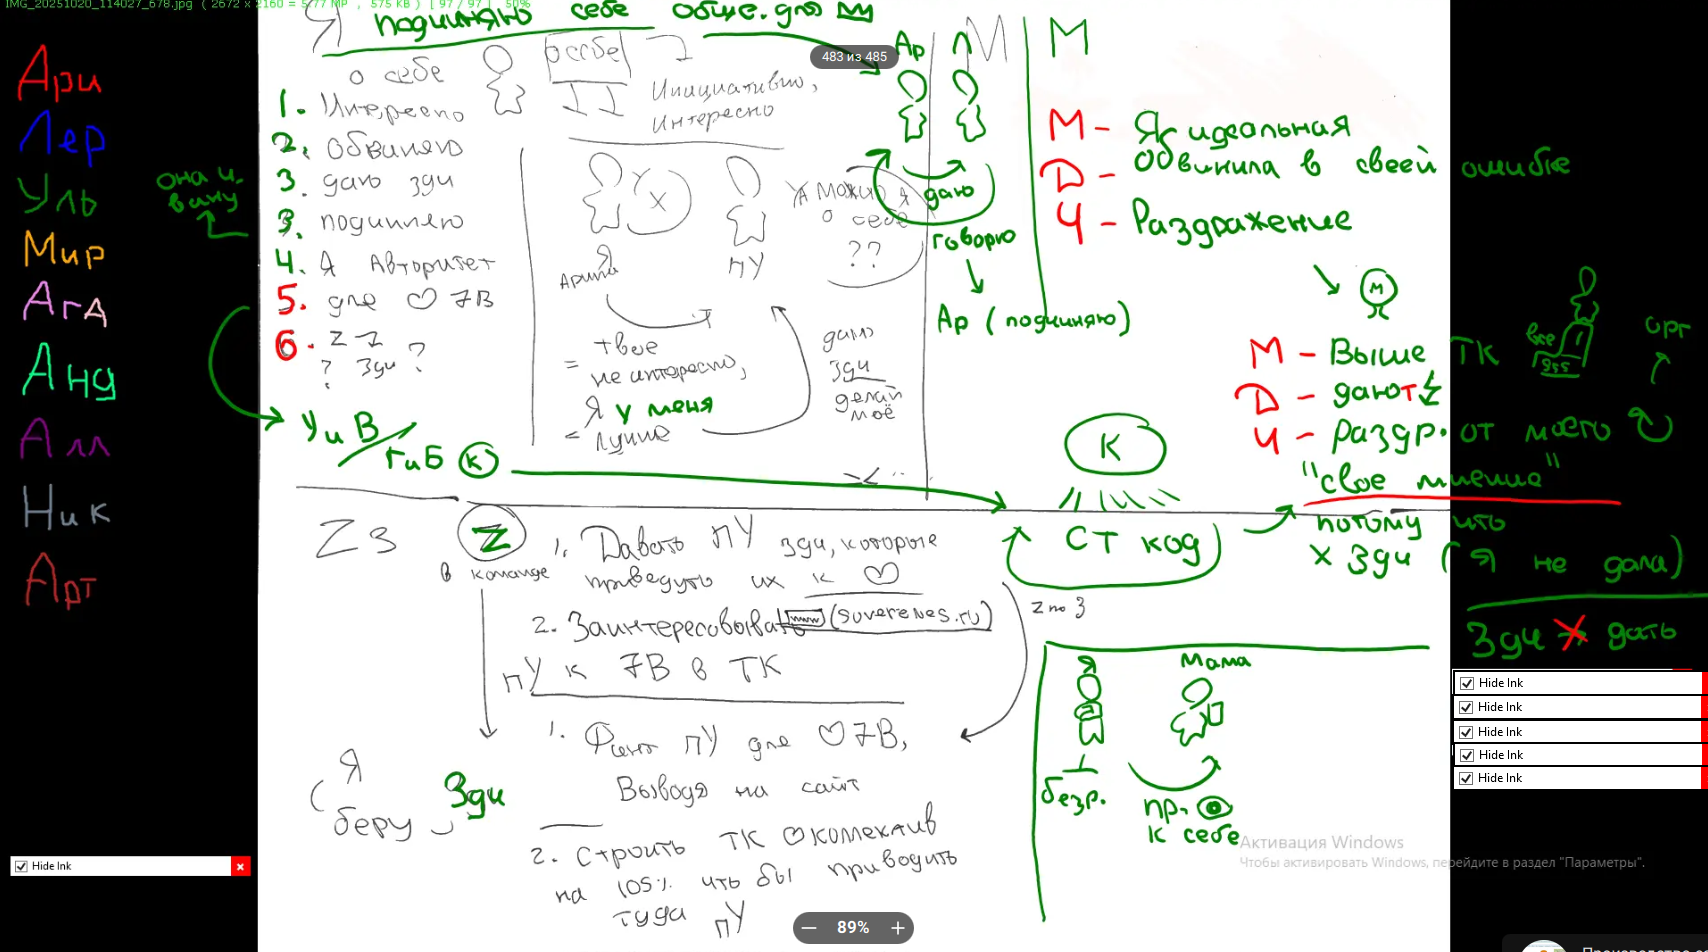 IMG_20251020_114027_678.jpg ( 2672 x 2160 = 5.77 MP , 575 KB ) [ 97 / 97 ] 50%
483 из 485
Ари
Лер
Уль
Мир
Ага
Анд
Алл
Ник
Арт
она и.
вину
Я подчиняю себе обще. для
о себе
1. Интересно
2. обвиняю
3. даю зди
3. подчиняю
4. Я Авторитет
5. для ♡ 7В
6. Z-1
? Зди ?
У и В
Г и Б К
о себе
Инициативно,
Интересно
Х
Я
Арина
ПУ
твое
= не интересно,
Я у меня
= лучше
А можно я
о себе
??
даю
зди
делай
моё
Ар Л М
даю
говорю
Ар (подчиняю)
М
М - Я идеальная
Д - Обвинила в своей ошибке
Ч - Раздражение
М
М - Выше ТК
Д - дают
Ч - Раздр. от моего
"свое мнение"
потому что
х Зди ( Я не дала)
Зди дать
все
орг
К
СТ код
Z3
Z
в команде
1. Давать ПУ зди, которые
приведут их к ♡
2. Заинтересовывать www (suverenes.ru)
ПУ к 7В в ТК
Z по 3
1. Фант ПУ для ♡ 7В,
Выводя на сайт
2. Строить ТК ♡ коллектив
на 105% что бы приводить
туда ПУ
Я
беру
Зди
Я
Мама
безр.
пр.
к себе
Hide Ink
Hide Ink
Hide Ink
Hide Ink
Hide Ink
Hide Ink
Активация Windows
Чтобы активировать Windows, перейдите в раздел "Параметры".
89%